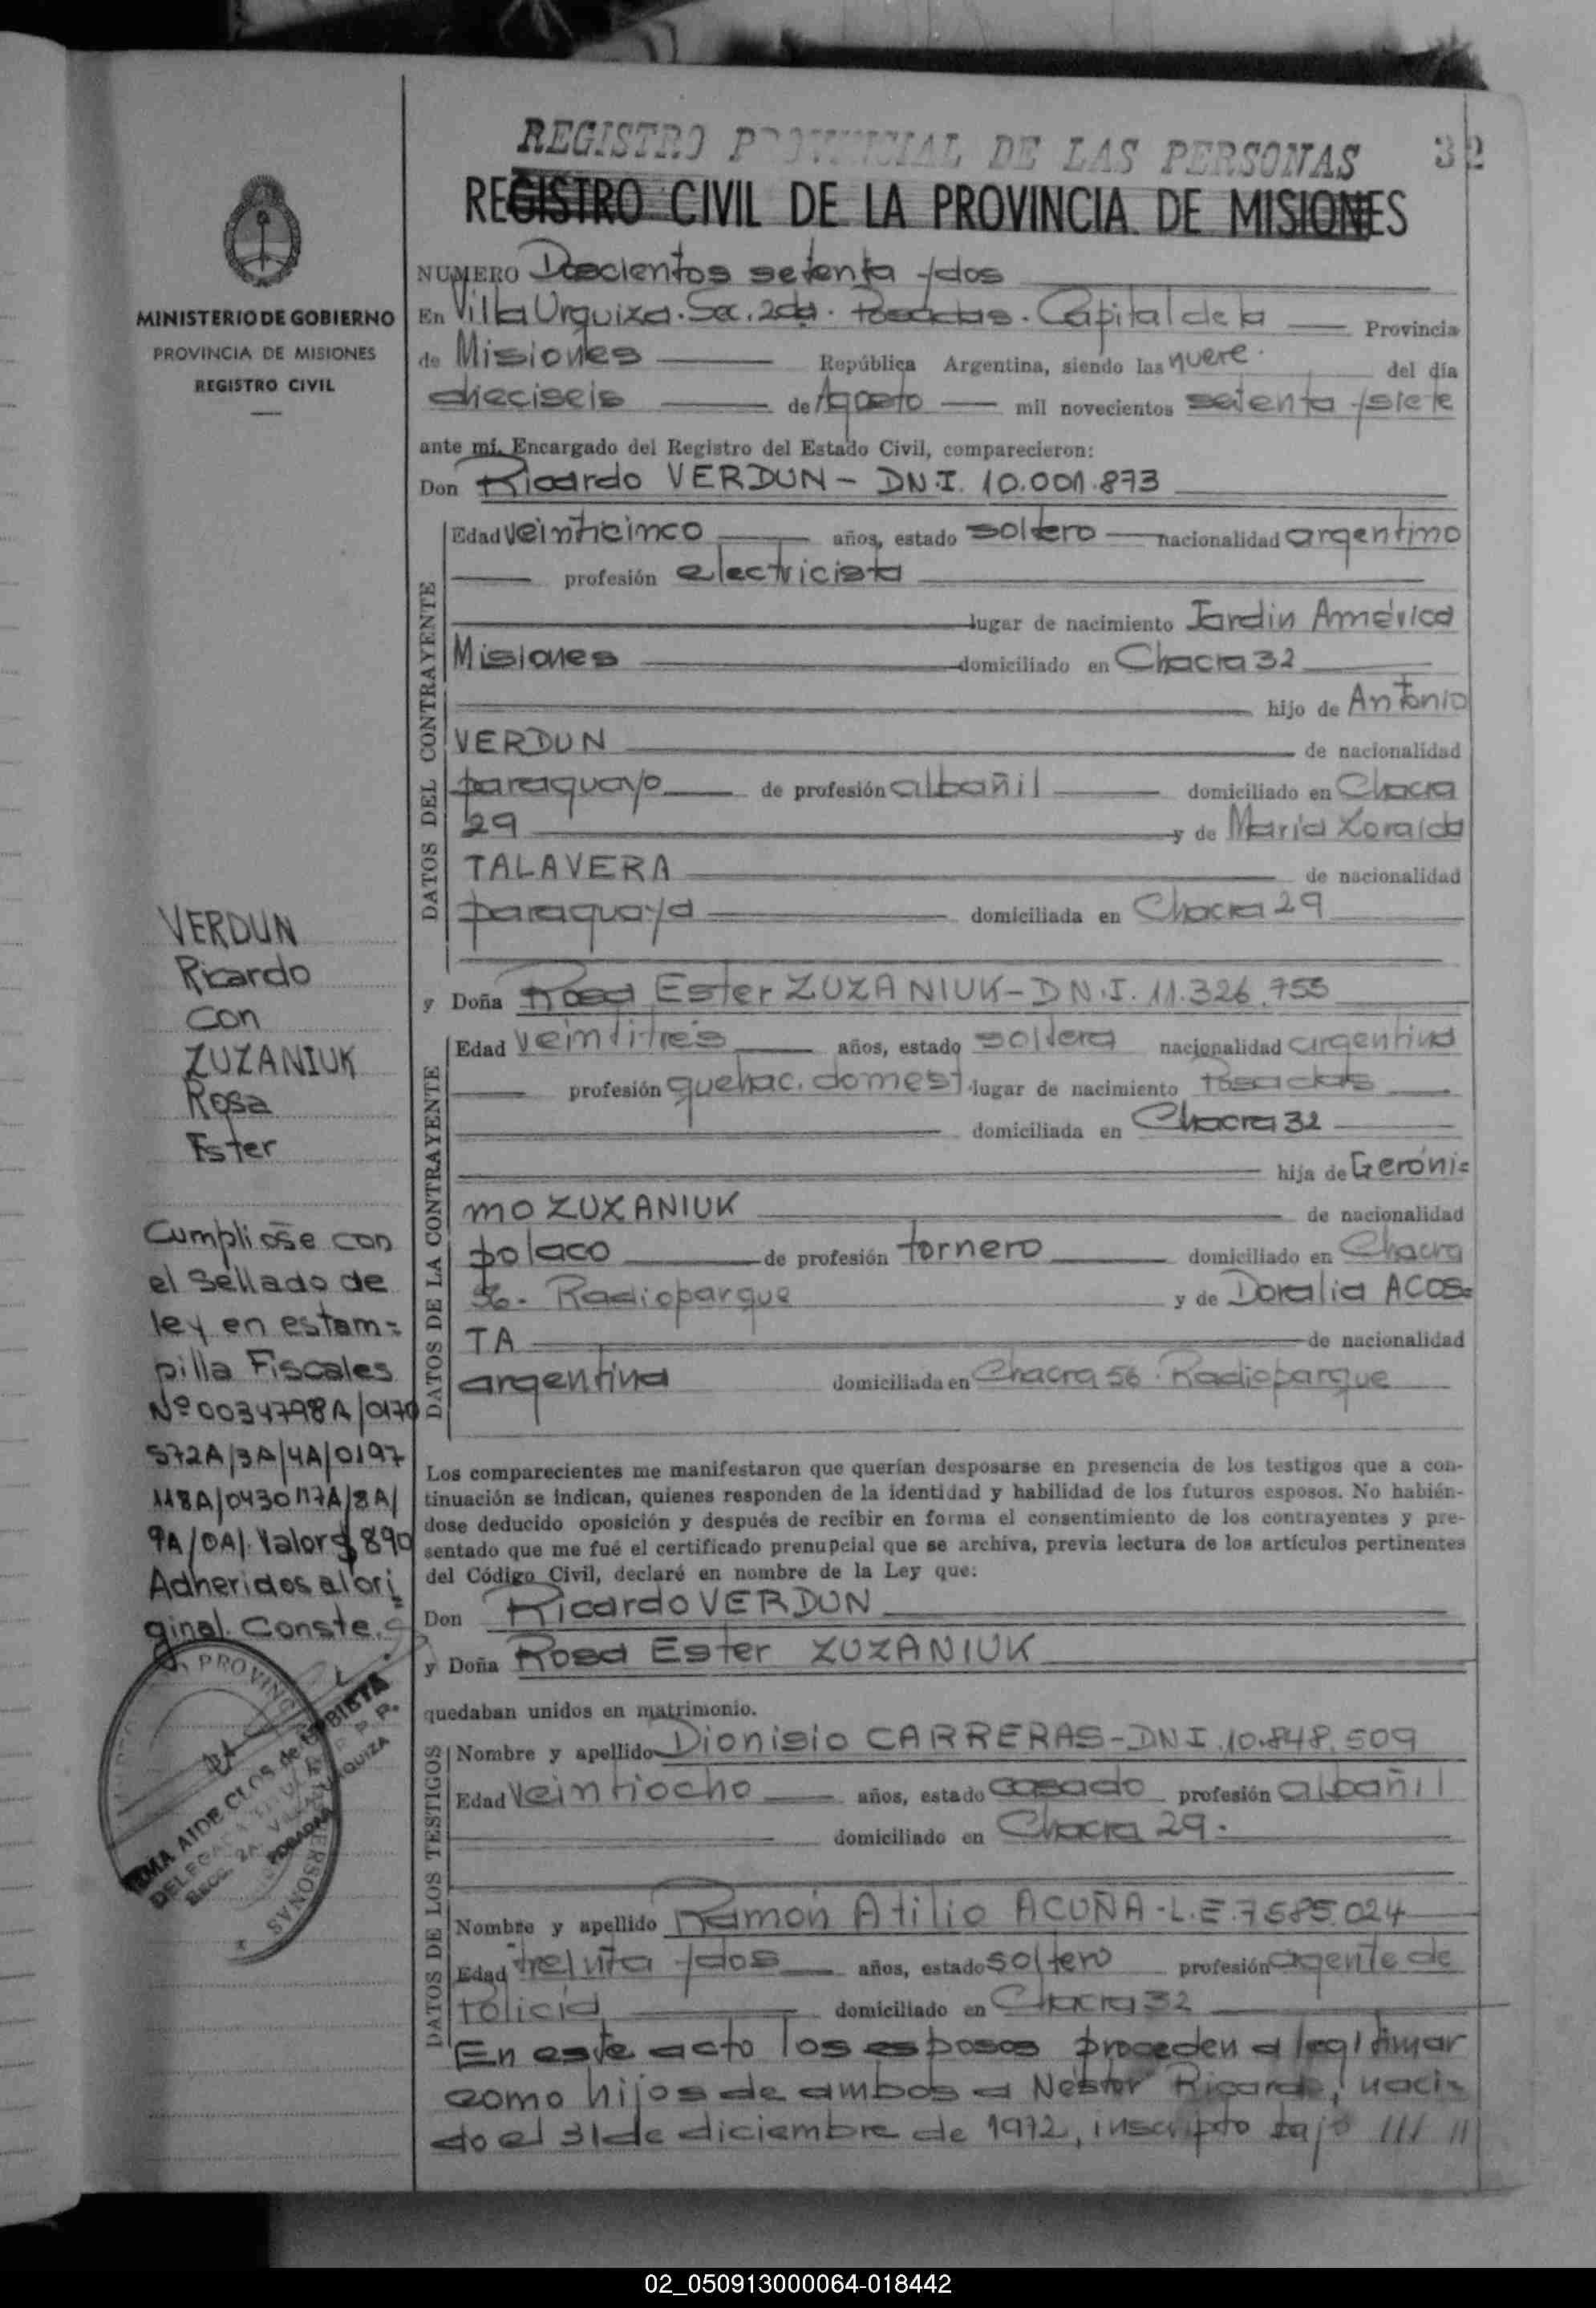 REGISTRO PROVINCIAL DE LAS PERSONAS
32
REGISTRO CIVIL DE LA PROVINCIA DE MISIONES
MINISTERIO DE GOBIERNO
PROVINCIA DE MISIONES
REGISTRO CIVIL
NUMERO Doscientos setenta y dos
En Villa Urquiza. Sec. 2da. Posadas. Capital de la Provincia
de Misiones República Argentina, siendo las nueve. del día
dieciseis de Agosto mil novecientos setenta y siete
ante mí, Encargado del Registro del Estado Civil, comparecieron:
Don Ricardo VERDUN - DN.I. 10.001.873
DATOS DEL CONTRAYENTE
Edad veinticinco años, estado soltero nacionalidad argentino
profesión electricista
lugar de nacimiento Jardin América
Misiones domiciliado en Chacra 32
hijo de Antonio
VERDUN de nacionalidad
paraguayo de profesión albañil domiciliado en Chacra
29 y de María Zoraida
TALAVERA de nacionalidad
paraguaya domiciliada en Chacra 29
y Doña Rosa Ester ZUZANIUK - DN.I. 11.326.755
DATOS DE LA CONTRAYENTE
Edad veintitrés años, estado soltera nacionalidad argentina
profesión quehac. domest. lugar de nacimiento Posadas
domiciliada en Chacra 32
hija de Geróni=
mo ZUZANIUK de nacionalidad
polaco de profesión tornero domiciliado en Chacra
56. Radioparque y de Doralia ACOS=
TA de nacionalidad
argentina domiciliada en Chacra 56. Radioparque
Los comparecientes me manifestaron que querían desposarse en presencia de los testigos que a con-
tinuación se indican, quienes responden de la identidad y habilidad de los futuros esposos. No habién-
dose deducido oposición y después de recibir en forma el consentimiento de los contrayentes y pre-
sentado que me fué el certificado prenupcial que se archiva, previa lectura de los artículos pertinentes
del Código Civil, declaré en nombre de la Ley que:
Don Ricardo VERDUN
y Doña Rosa Ester ZUZANIUK
quedaban unidos en matrimonio.
DATOS DE LOS TESTIGOS
Nombre y apellido Dionisio CARRERAS - DNI. 10.848.509
Edad veintiocho años, estado casado profesión albañil
domiciliado en Chacra 29.
DATOS DE LOS TESTIGOS
Nombre y apellido Ramón Atilio ACUÑA - L.E. 7585.024
Edad treinta y dos años, estado soltero profesión agente de
Policía domiciliado en Chacra 32
En este acto los esposos proceden a legitimar
como hijos de ambos a Nestor Ricardo, naci=
do el 31 de diciembre de 1972, inscripto bajo /// //
VERDUN
Ricardo
con
ZUZANIUK
Rosa
Ester
Cumpliose con
el sellado de
ley en estam=
pilla Fiscales
Nº 0034798A/0170
572A/3A/4A/0197
118A/0430117A/8A/
9A/0A/. Valor $ 890
Adheridos al ori
ginal. Conste.
PROVINC
AIDE CLOS de
POSADAS
PERSONAS
02_050913000064-018442